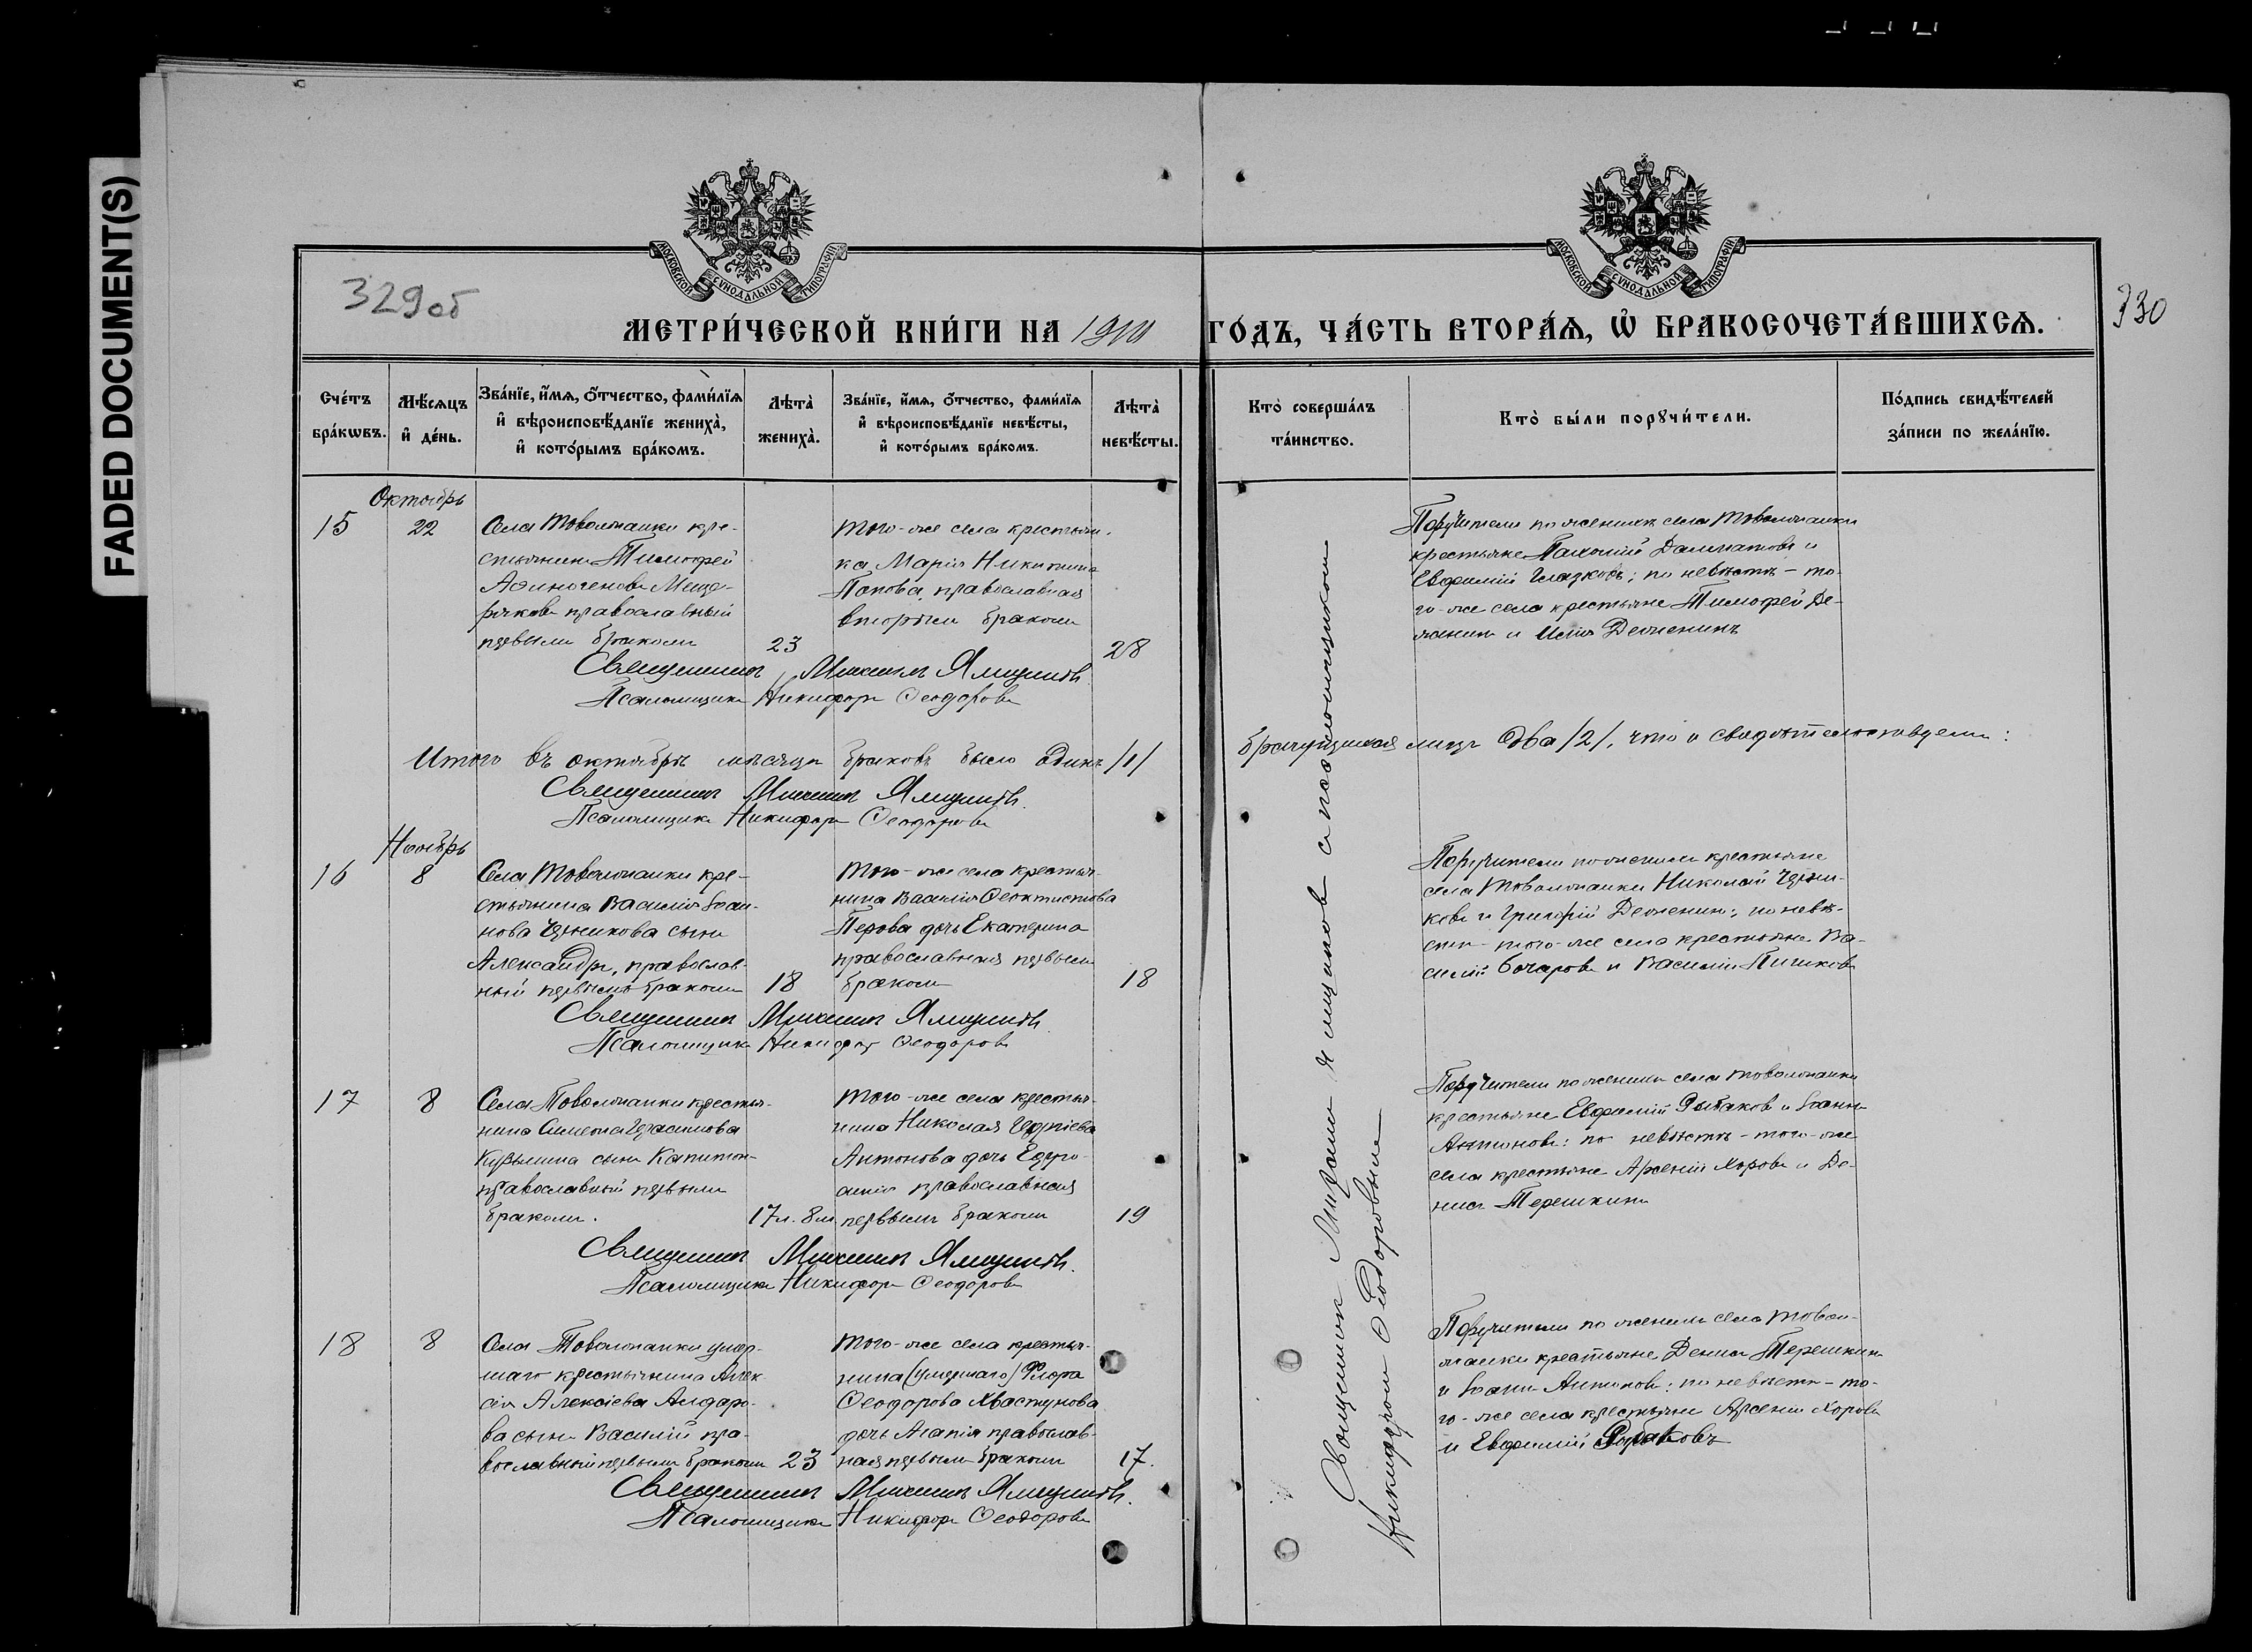 FADED DOCUMENT(S)
329об
330
МОСКОВСКОЙ СѴНОДАЛЬНОЙ ТИПОГРАФІИ
МОСКОВСКОЙ СѴНОДАЛЬНОЙ ТИПОГРАФІИ
МЕТРИ́ЧЕСКОЙ КНИ́ГИ НА 1910 ГО́ДЪ, ЧА́СТЬ ВТОРА́Ѧ, Ѽ БРАКОСОЧЕТА́ВШИХСѦ.
Сче́тъ
бра́кѡвъ.
Мѣ́сѧцъ
и҆ де́нь.
Зва́нїе, и҆́мѧ, ѻ҆́тчество, фами́лїѧ
и҆ вѣроисповѣ́данїе жениха̀,
и҆ кото́рымъ бра́комъ.
Лѣта̀
жениха̀.
Зва́нїе, и҆́мѧ, ѻ҆́тчество, фами́лїѧ
и҆ вѣроисповѣ́данїе невѣ́сты,
и҆ кото́рымъ бра́комъ.
Лѣта̀
невѣ́сты.
Кто̀ соверша́лъ
та́инство.
Кто̀ бы́ли порꙋчи́тели.
По́дпись свидѣ́телей
за́писи по жела́нїю.
Октябрь
15
22
Села Товолжанки кре-
стьянинъ Тимофей
Аѳиногеновъ Меще-
ряковъ православный
первымъ бракомъ
23
Того-же села крестьян-
ка Марія Никитина
Попова, православная
вторымъ бракомъ
28
Поручители по женихѣ села Товолжанки
крестьяне Пахомій Далматовъ и
Евфимій Глазковъ; по невѣстѣ - то-
го-же села крестьяне Тимофей Де-
и Илія Деженинъ
Священникъ Михаилъ Ямщиковъ
Псаломщикъ Никифоръ Ѳеодоровъ
Итого въ октябрѣ мѣсяцѣ браковъ было одинъ /1/
брачущихся лицъ два /2/, что и свидѣтельствуемъ:
Священникъ Михаилъ Ямщиковъ.
Псаломщикъ Никифоръ Ѳеодоровъ
Ноябрь
16
8
Села Товолжанки кре-
стьянина Василія Іоан-
нова Черникова сынъ
Александръ, православ-
ный первымъ бракомъ
18
Того-же села крестья-
нина Василія Ѳеоктистова
Перова дочь Екатерина
православная первымъ
бракомъ
18
Поручители по женихѣ крестьяне
села Товолжанки Николай Черни-
ковъ и Григорій Деженинъ; по невѣ-
стѣ - того-же села крестьяне Ва-
силій Бочаровъ и Василій Пичиковъ
Священникъ Михаилъ Ямщиковъ.
Псаломщикъ Никифоръ Ѳеодоровъ
17
8
Села Товолжанки крестья-
нина Симеона Герасимова
Кузьмина сынъ Капитонъ
православный первымъ
бракомъ.
17л. 8м.
Того-же села крестья-
нина Николая
Антонова дочь Евфро-
синія православная
первымъ бракомъ
19
Поручители по женихѣ села Товолжанки
крестьяне Евфимій Рыбаковъ и Іоаннъ
Антоновъ: по невѣстѣ - того-же
села крестьяне Арсеній Хоровъ и Де-
нисъ Терешкинъ
Священникъ Михаилъ Ямщиковъ.
Псаломщикъ Никифоръ Ѳеодоровъ
18
8
Села Товолжанки умер-
шаго крестьянина Алек-
сія Алексіева Алфёро-
ва сынъ Василій пра-
вославный первымъ бракомъ
23
Того-же села крестья-
нина (умершаго) Флора
Ѳеодорова Хвастунова
дочь Агапія православ-
ная первымъ бракомъ
17.
Поручители по женихѣ села Товол-
жанки крестьяне Денисъ Терешкинъ
и Іоаннъ Антоновъ: по невѣстѣ - то-
го-же села крестьяне Арсеній Хоровъ
и Евфимій Рыбаковъ
Священникъ Михаилъ Ямщиковъ.
Псаломщикъ Никифоръ Ѳеодоровъ
Священникъ Ямщиковъ с псаломщикомъ
Никифоромъ Ѳеодоровымъ